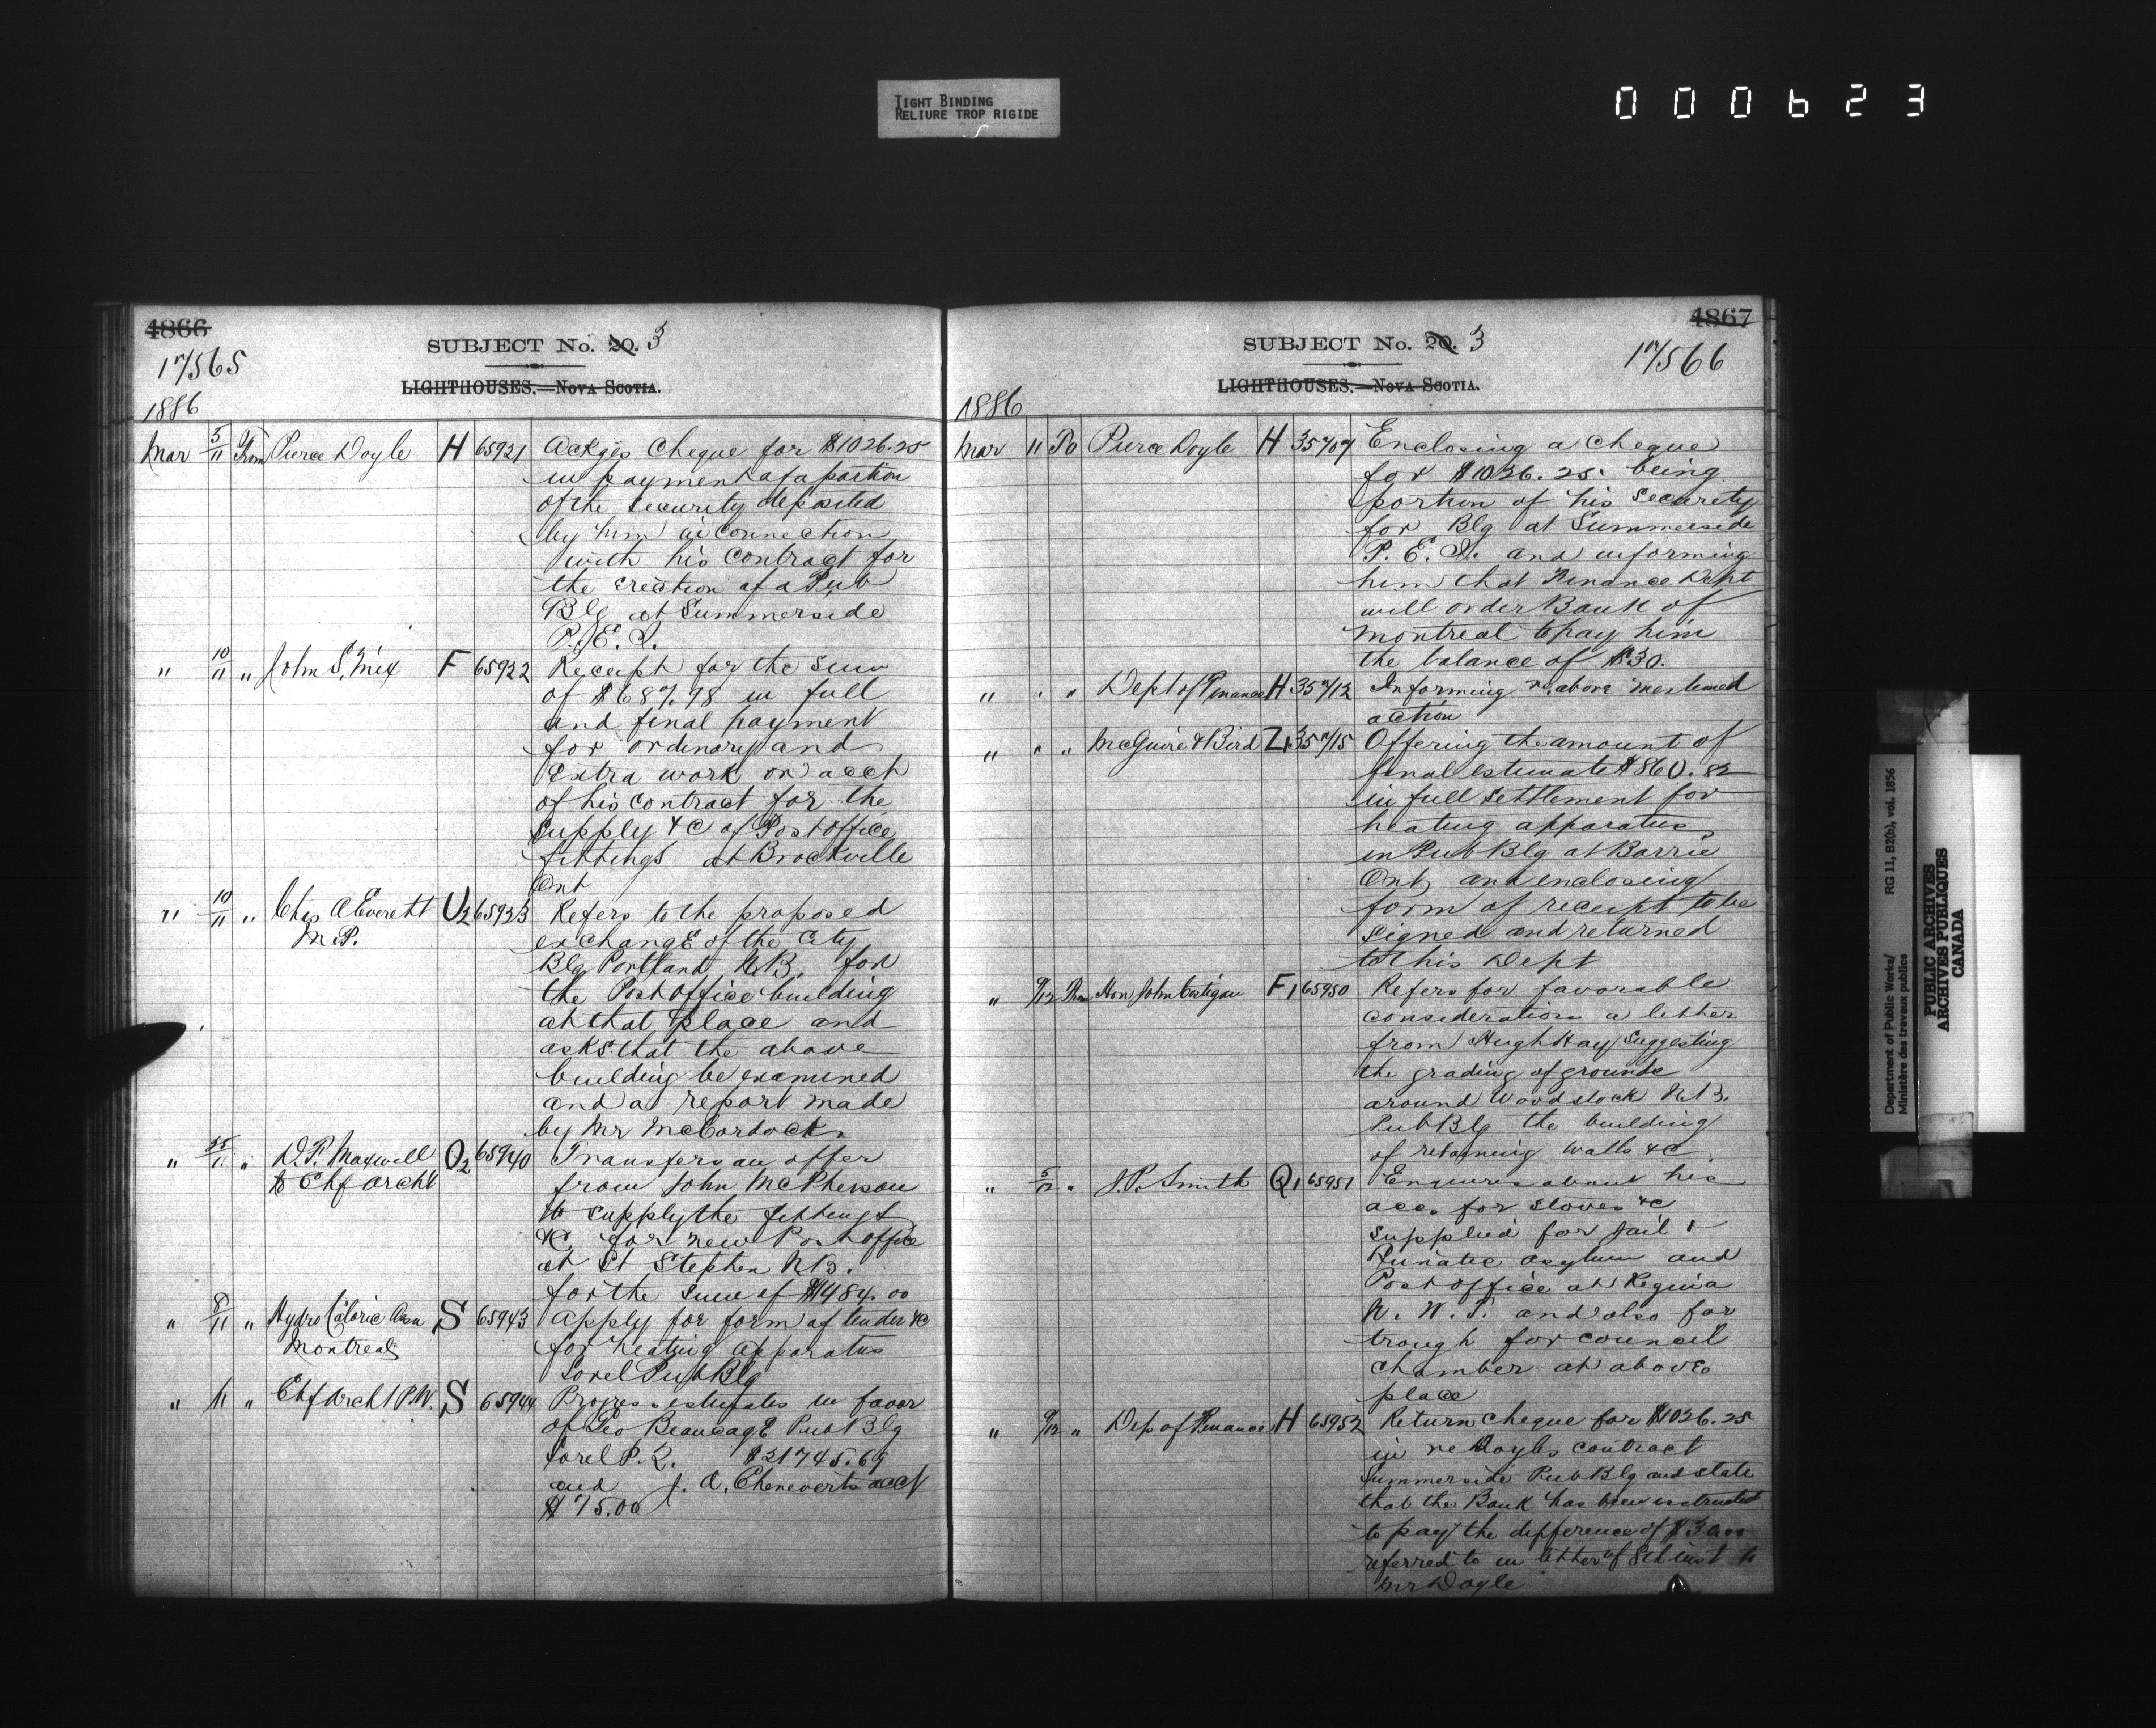 TIGHT BINDING
RELIURE TROP RIGIDE
000623
4866
17565
SUBJECT No. 20. 3
LIGHTHOUSES.—NOVA SCOTIA.
1886
Mar 5/11 From Pierce Doyle H 65921 Ackges Cheque for $1026.25
in payment of a portion
of the security deposited
by him in connection
with his contract for
the erection of a Pub
Blg at Summerside
P.E.I.
" 10/11 " John S. Mix F 65922 Receipt for the sum
of $687.98 in full
and final payment
for ordinary and
Extra work on acct
of his contract for the
Supply &c of Post office
fittings at Brockville
Ont
" 10/11 " Chas A Everett U2 65923 Refers to the proposed
M.P. exchange of the City
Blg Portland N.B. for
the Post Office building
at that place and
asks that the above
building be examined
and a report made
by Mr McCordock
" /11 " D.F. Maxwell O2 65940 Transfers an offer
to Chf Archt from John McPherson
to supply the fittings
&c. for new Post office
at St Stephen N.B.
for the sum of $1484.00
" 8/11 " Hydro Caloric Assn S 65943 Apply for form of tender &c
Montreal for heating apparatus
Sorel Pub Blg
" 11 " Chf Archt P.W. S 65944 Progress estimates in favor
of Geo Beaucage Pub Blg
Sorel P.Q. $21745.69
and J. A. Cheneverts acct
$75.00
4867
SUBJECT No. 20. 3
17566
LIGHTHOUSES.—NOVA SCOTIA.
1886
Mar 11 To Pierce Doyle H 35707 Enclosing a cheque
for $1026.25. being
portion of his security
for Blg at Summerside
P.E.I. and informing
him that Finance Dept
will order Bank of
Montreal to pay him
the balance of $30.
" " " Dept of Finance H 35712 Informing re above mentioned
action
" " " McGuire & Bird Z1 35715 Offering the amount of
final estimate $860.82
in full settlement for
heating apparatus
in Pub Blg at Barrie
Ont, and enclosing
form of receipt to be
signed and returned
to this Dept
" 9/12 From Hon John Costigan F1 65950 Refers for favorable
consideration a letter
from Hugh Hay suggesting
the grading of grounds
around Woodstock N.B.
Pub Blg the building
of retaining walls &c
" 5/12 " J.P. Smith Q1 65951 Enquires about his
acc. for stoves &c
supplied for Jail &
Lunatic asylum and
Post office at Regina
N.W.T. and also for
trough for council
chamber at above
place
" 9/12 " Dep of Finance H 65952 Return cheque for $1026.25
in re Doyles contract
Summerside Pub Blg and state
that the Bank has been instructed
to pay the difference of $30.00
referred to in letter of 8th inst to
Mr Doyle
Department of Public Works/ RG 11, B2(b), vol. 1856
Ministère des travaux publics
PUBLIC ARCHIVES
ARCHIVES PUBLIQUES
CANADA